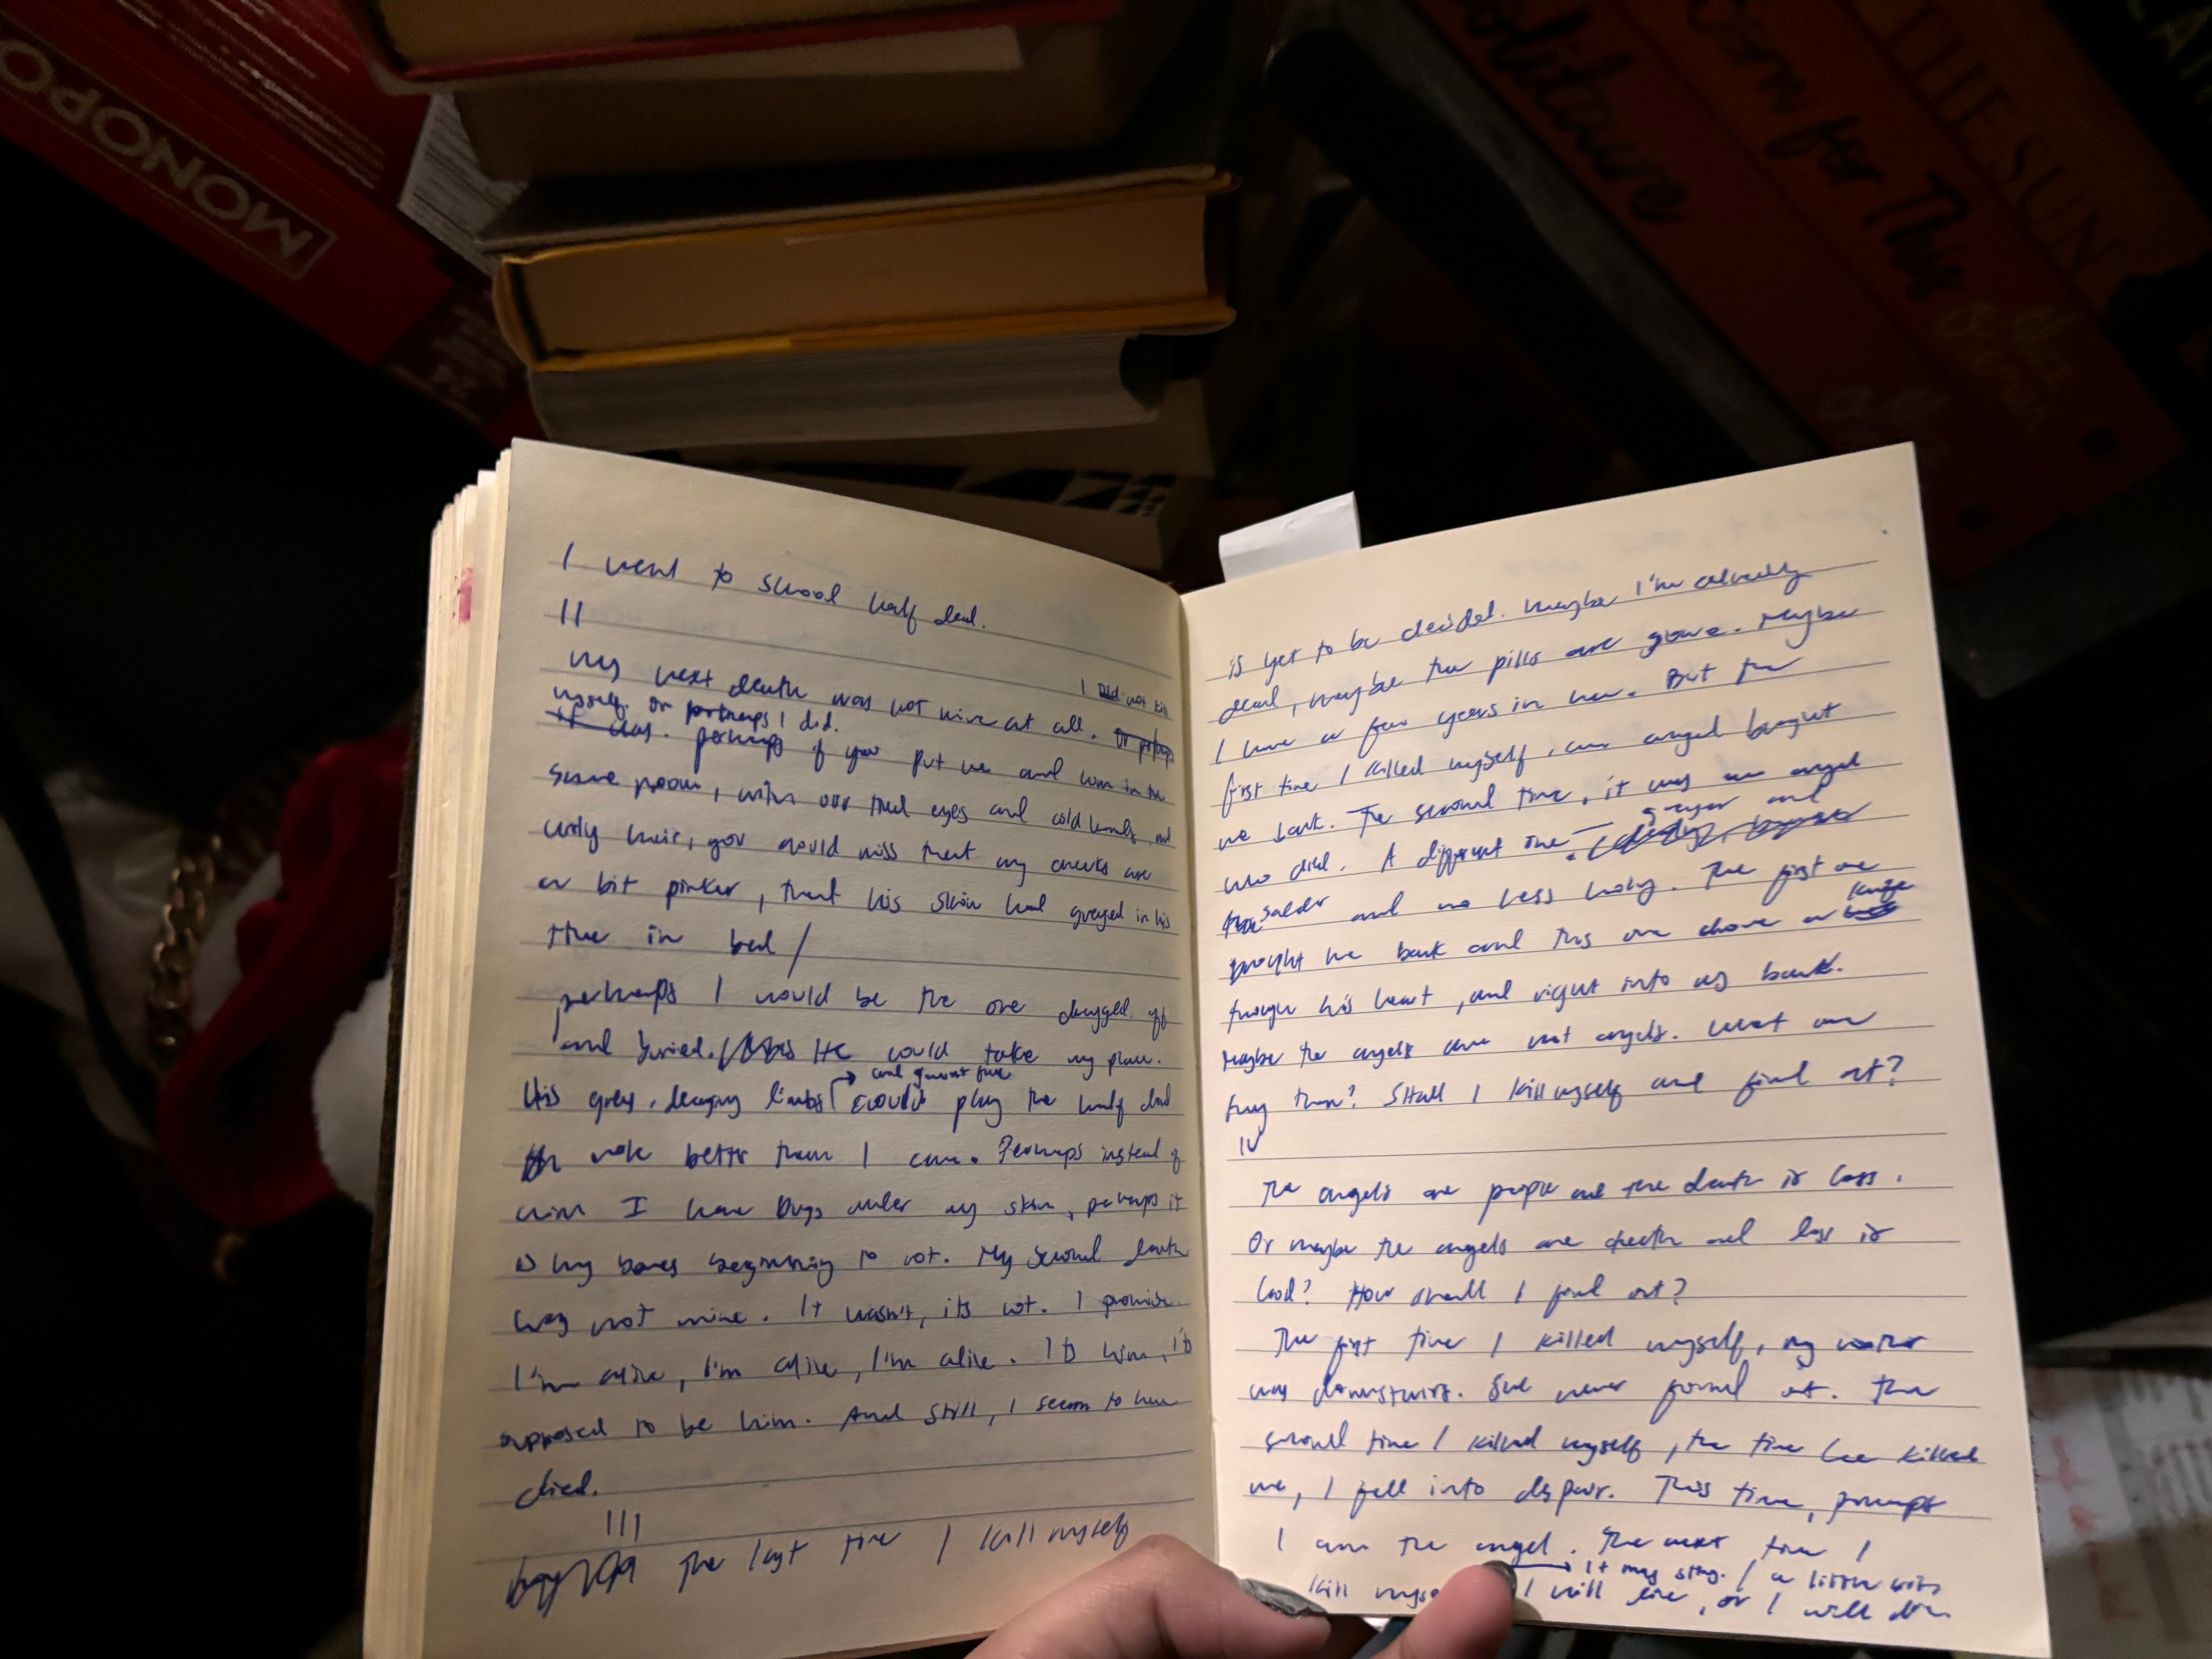 MONOPO
24
Solitaire
Born for This
THE SUN
Alice Oseman
I went to school half dead.
II
I did not kill
My next death was not mine at all. or perhaps
myself. or perhaps I did.
it was. perhaps if you put me and him in the
same room, with our tired eyes and cold hands and
curly hair, you would miss that my cheeks are
a bit pinker, that his skin had greyed in his
time in bed /
perhaps I would be the one dragged off
and buried. He could take my place.
and gaunt face
His grey, decaying limbs could play the half dead
role better than I can. Perhaps instead of
him I have bugs under my skin, perhaps it
is my bones beginning to rot. My second death
was not mine. It wasn't, it's not. I promise.
I'm alive, I'm alive, I'm alive. It's him, it's
supposed to be him. And still, I seem to have
died.
III
The last time I kill myself
is yet to be decided. Maybe I'm already
dead, maybe the pills are gone. Maybe
I have a few years in me. But the
first time I killed myself, an angel brought
me back. The second time, it was an angel
who died. A different one - greyer and
sadder and no less holy. The first one
knife
brought me back and this one drove a
through his heart, and right into my back.
Maybe the angels are not angels. What are
they then? Shall I kill myself and find out?
IV
The angels are people and the death is loss.
Or maybe the angels are death and loss is
God? How shall I find out?
The first time I killed myself, my mother
was downstairs. She never found out. The
second time I killed myself, the time Lee killed
me, I fell into despair. This time, perhaps
I am the angel. The next time I
it may sting. / a little
kill I will live, or I will die